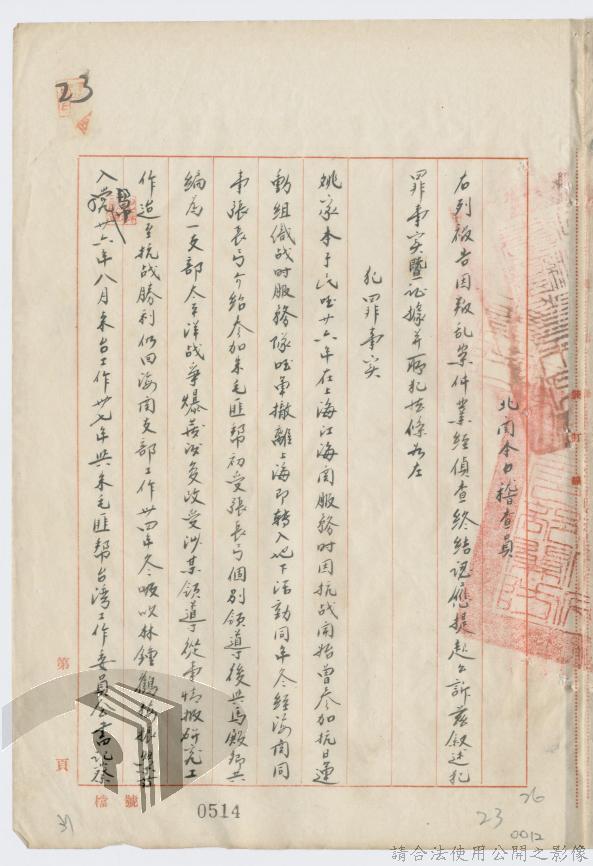 23
北關本口稽查員
右列被告因叛乱案件業經偵查終結認應提起公訴茲敘述犯
罪事实暨証據并所犯法條如左
犯罪事实
姚家本于民国廿六年在上海江海関服務时因抗战開始曾参加抗日運
動組織战时服務隊国軍撤離上海即轉入地下活動同年冬經海関同
事張長弓介紹参加朱毛匪幫初受張長弓個別領導後與馬殿卿共
編为一支部太平洋战爭爆發後复改受沙某領導從事情报研究工
作迨至抗战勝利仍回海関支部工作卅四年冬吸收林鍾鶴
入党卅六年八月来台工作卅七年與朱毛匪幫台湾工作委員会書記蔡
第 頁
檔號
0514
23
26
0012
31
裝 訂 線
請合法使用公開之影像